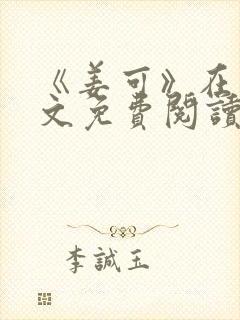 《姜可》在
文免費閱讀
李誠玉